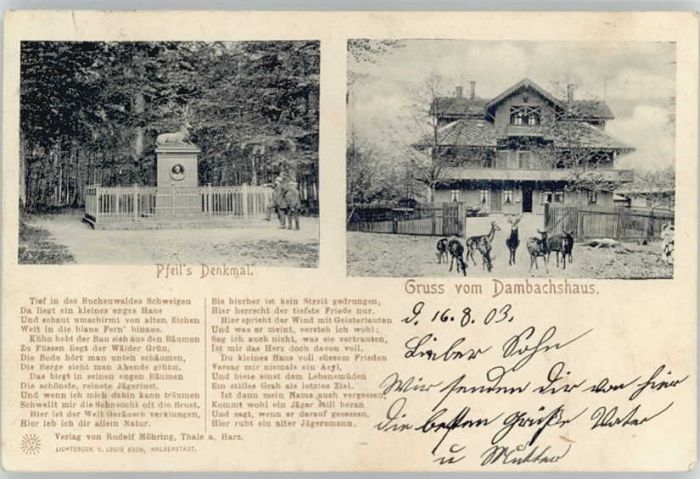 Pfeil's Denkmal.
Gruss vom Dambachshaus.
Tief in des Buchenwaldes Schweigen
Da liegt ein kleines enges Haus
Und schaut umschirmt von alten Eichen
Weit in die blaue Fern' hinaus.
Kühn hebt der Bau sich aus den Bäumen
Zu Füssen liegt der Wälder Grün,
Die Bode hört man unten schäumen,
Die Berge sieht man Abends glühn,
Das birgt in seinen engen Räumen
Die schönste, reinste Jägerlust,
Und wenn ich mich dahin kann träumen
Schwellt mir die Sehnsucht oft die Brust,
Hier ist der Welt Geräusch verklungen,
Hier leb ich dir allein Natur.
Bis hierher ist kein Streit gedrungen,
Hier herrscht der tiefste Friede nur.
Hier spricht der Wind mit Geisterlauten
Und was er meint, versteh ich wohl;
Sag ich auch nicht, was sie vertrauten,
Ist mir das Herz doch davon voll.
Du kleines Haus voll süssem Frieden
Versag mir niemals ein Asyl,
Und biete einst dem Lebensmüden
Ein stilles Grab als letztes Ziel.
Ist dann mein Name auch vergessen,
Kommt wohl ein Jäger still heran
Und sagt, wenn er darauf gesessen,
Hier ruht ein alter Jägersmann.
Verlag von Rudolf Möhring, Thale a. Harz.
LICHTDRUCK V. LOUIS KOCH, HALBERSTADT.
d. 16. 8. 03.
Lieber Sohn
Wir senden Dir von hier
die besten Grüße Vater
u Mutter